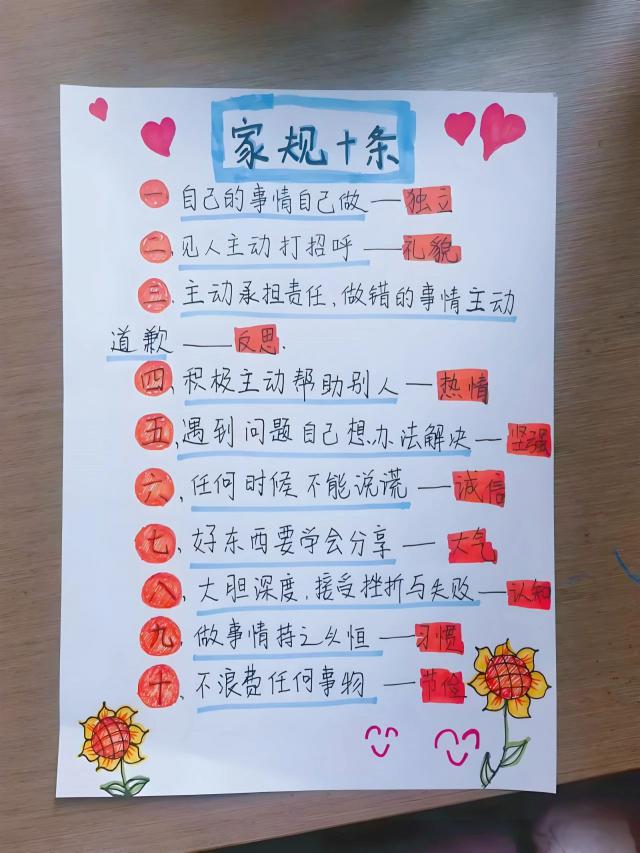 家规十条
一 自己的事情自己做——独立
二、见人主动打招呼——礼貌
三、主动承担责任,做错的事情主动
道歉——反思.
四、积极主动帮助别人——热情
五、遇到问题自己想办法解决——坚强
六、任何时候不能说谎——诚信
七、好东西要学会分享——大气
八、大胆深度,接受挫折与失败——认知
九、做事情持之以恒——习惯
十、不浪费任何事物——节俭